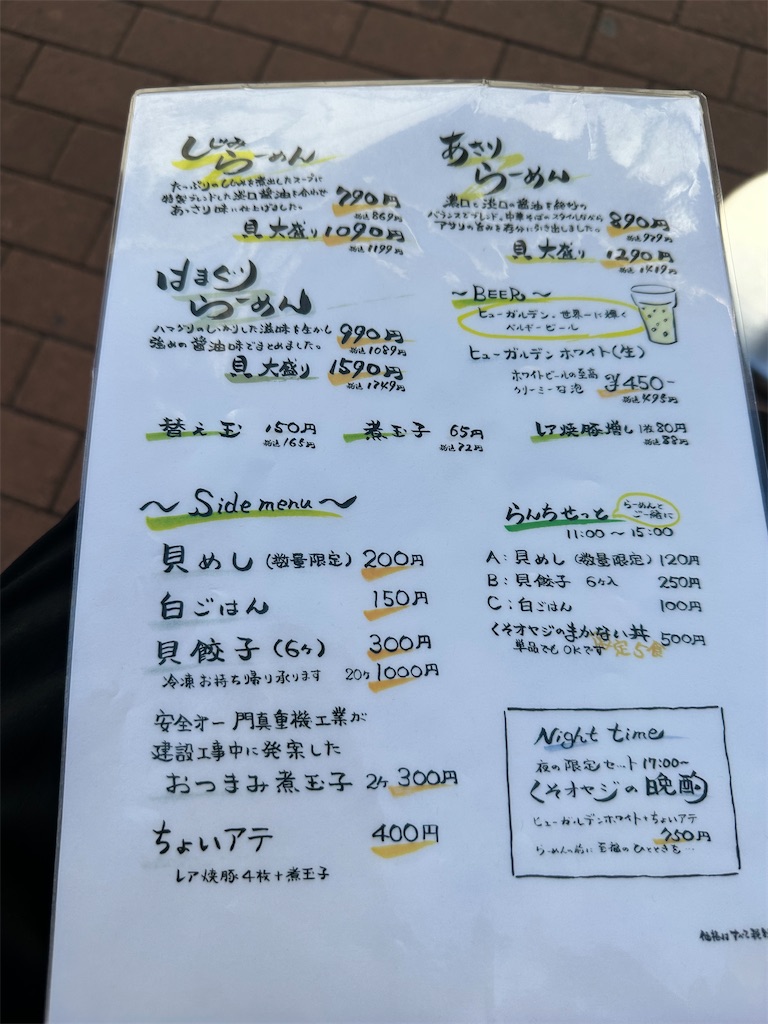 しじみ
らーめん
たっぷりのしじみを煮出したスープに
特製ブレンドした淡口醤油を合わせ
あっさり味に仕上げました。
790円
税込869円
貝大盛り1090円
税込1199円
あさり
らーめん
濃口と淡口の醤油を絶妙の
バランスでブレンド。中華そばのスタイルながら
アサリの旨みを存分に引き出しました。
890円
税込979円
貝大盛り 1290円
税込1419円
はまぐり
らーめん
ハマグリのしっかりした滋味を生かし
強めの醤油味でまとめました。
990円
税込1089円
貝大盛り 1590円
税込1749円
~BEER~
ヒューガルデン。世界一に輝く
ベルギービール
ヒューガルデンホワイト(生)
ホワイトビールの至高
クリーミーな泡
¥450-
税込495円
替え玉 150円
税込165円
煮玉子 65円
税込72円
レア焼豚増し1枚80円
税込88円
~Side menu~
貝めし(数量限定)200円
白ごはん 150円
貝餃子(6ケ) 300円
冷凍お持ち帰り承ります 20ケ1000円
安全オー門真重機工業が
建設工事中に発案した
おつまみ煮玉子 2ケ300円
ちょいアテ 400円
レア焼豚4枚+煮玉子
らんちせっと
らーめんと
ご一緒に
11:00~15:00
A:貝めし(数量限定)120円
B:貝餃子 6ケ入 250円
C:白ごはん 100円
くそオヤジのまかない丼 500円
単品でもOKです
限定5食
Night time
夜の限定セット17:00~
くそオヤジの晩酌
ヒューガルデンホワイト+ちょいアテ
750円
らーめんの前に至福のひとときを…
価格はすべて税